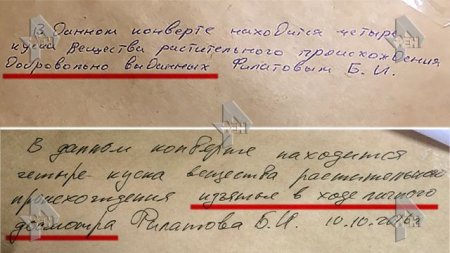 В данном конверте находится четыре
куска вещества растительного происхождения
добровольно выданных Филатовым Б.И.
В данном конверте находится
четыре куска вещества растительного
происхождения изъятые в ходе личного
досмотра Филатова Б.И. 10.10.2016г
РЕН